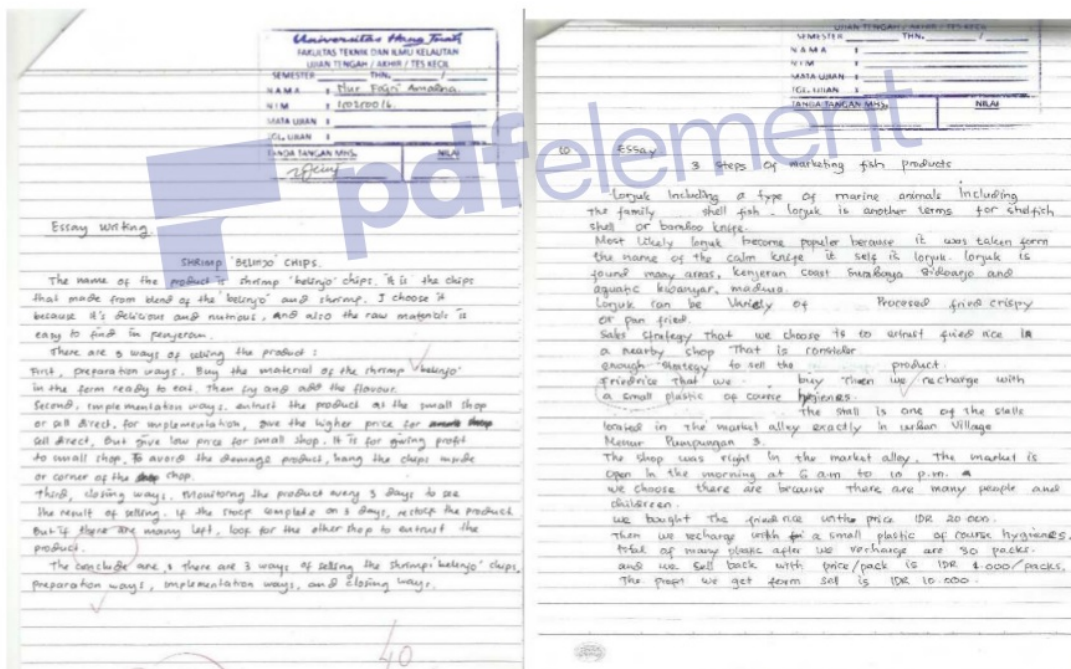 Universitas Hang Tuah
FAKULTAS TEKNIK DAN ILMU KELAUTAN
UJIAN TENGAH / AKHIR / TES KECIL
SEMESTER THN. /
NAMA : Nur Fajri Amalina
NIM :
MATA UJIAN :
TGL. UJIAN :
TANDA TANGAN MHS. NILAI
Essay Writing
SHRIMP 'BELINJO' CHIPS.
The name of the product is shrimp 'belinjo' chips. It is the chips
that made from blend of the 'belinjo' and shrimp. I choose it
because it's delicious and nutrious, And also the raw materials is
easy to find in penjeran.
There are 3 ways of selling the product :
First, preparation ways. Buy the material of the shrimp 'belinjo'
in the form ready to eat. Then fry and add the flavour.
Second, implementation ways. entrust the product at the small shop
or sell direct, for implementation, give the higher price for
sell direct, But give low price for small shop. It is for giving profit
to small shop. To avoid the demage product, hang the chips inside
or corner of the shop.
Third, closing ways. Monitoring the product every 3 days to see
the result of selling. if the stock complete on 3 days, restock the product
But if there are many left, look for the other shop to entrust the
product.
The conclude are, there are 3 ways of selling the shrimps 'belinjo' chips,
preparation ways, implementation ways, and closing ways.
40
UJIAN TENGAH / AKHIR / TES KECIL
SEMESTER THN. /
NAMA :
NIM :
MATA UJIAN :
TGL. UJIAN :
TANDA TANGAN MHS. NILAI
to Essay
3 Steps Of marketing fish products
Lorjuk Including a type of marine animals Including
The family shell fish. lorjuk is another terms for shelfich
shell or bamboo knife.
Most Likely lorjuk become populer because it was taken form
the name of the calm knife it self is lorjuk. lorjuk is
found many areas, kenjeran coast Surabaya Sidoarjo and
aquatic kwanyar, madura.
Lorjuk can be Variely of Procesed fried crispy
or pan fried.
Sales Strategy That we choose is to entrust fried rice in
a nearby shop That is consider
enough strategy to sell the product.
Friedrice that we buy Then we recharge with
a small plastic of course hygienes.
The stall is one of the stalls
located in the market alley exactly in urban Village
Menur Pumpungan 3.
The shop was right in the market alley. The market is
open in the morning at 6 a.m to 10 p.m.
we choose there are because There are many people and
childreen.
we bought The fried rice withe price IDR 20.000.
Then we recharge with a small plastic of course hygienes.
total of many plastic after we recharge are 30 packs.
and we sell back with price/pack is IDR 1.000/packs.
The profit we get form sell is IDR 10.000.
pdfelement